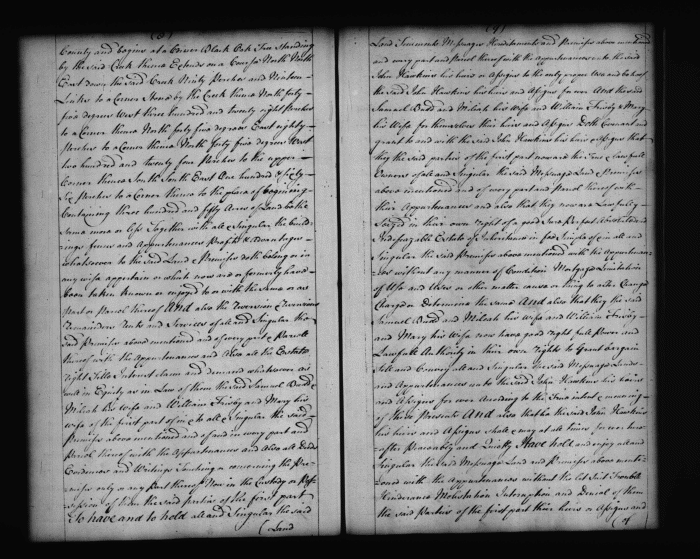 (8)
County and begins at a Corner Black Oak Tree Standing
by the Said Creek thence Extends on a Course North North
East down the Said Creek Ninety Perches and Nineteen
Links to a Corner Stone by the Creek thence North forty
five degrees West three hundred and twenty eight Perches
to a Corner thence North forty five degrees East eighty
Perches to a Corner thence North forty five degrees West
two hundred and twenty four Perches to the upper
Corner thence South South East One hundred & Sixty
Six Perches to a Corner thence to the place of beginning
Containing three hundred and fifty Acres of Land be the
Same more or less Together with all & Singular the build
ings fences and Appurtenances Profits & Advantages
whatsoever to the Said Land & Premises doth belong or in
any wise appertain or which now are or formerly have
been taken known or enjoyed to or with the Same or as
part or Parcel thereof And also the Reversion & Reversions
Remainders Rents and Services of all and Singular the
Said Premises above mentioned and of every part & Parcel
thereof with the Appurtenances and Also all the Estate
right Title Interest claim and demand whatsoever as
well in Equity as in Law of them the Said Samuel Budd &
Milcah his Wife and William Frisby and Mary his
wife of the first part of in & to all & Singular the said
Premises above mentioned and of and in every part and
Parcel thereof with the Appurtenances and Also all Deeds
Evidences and Writings Touching or concerning the Pre
mises only or any part thereof Now in the Custody or Pos
session of them the said parties of the first part
To have and to hold all and Singular the said
(Land
(9)
Land Tenements Messuages Hereditaments and Premises above mentioned
and every part and Parcel thereof with the Appurtenances to the said
John Hawkins his heirs or Assigns to the only proper Use and behoof of
the Said John Hawkins his heirs and Assigns for ever And the said
Samuel Budd and Milcah his Wife and William Frisby & Mary
his Wife for themselves their heirs and Assigns Doth Covenant and
grant to and with the said John Hawkins his heirs & Assigns that
they the said parties of the first part now are the True & lawfull
Owners of all and Singular the said Messuage Land & Premises
above mentioned and of every part and Parcel thereof with
their Appurtenances and also that they now are Lawfully
Seized in their own right of a good Sure Perfect Absolute and
Indefeazable Estate of Inheritance in fee Simple of in all and
Singular the Said Premises above mentioned with the Appurtenan
ces without any manner of Condition Mortgage Limitation
of Use and Uses or other matter cause or thing to alter Change
Charge or Determine the Same And also that they the said
Samuel Budd and Milcah his wife and William Frisby
and Mary his Wife now have good right full Power and
Lawfull Authority in their own rights to Grant bargain
Sell and Convey all and Singular the said Messuage Lands
and Appurtenances unto the said John Hawkins his heirs
and Assigns for ever According to the True intent & meaning
of these Presents And also that he the said John Hawkins
his heirs and Assigns Shall & may at all times for ever here
after Peaceably and Quietly Have hold and enjoy all and
Singular the Said Messuage Land and Premises above menti
oned with the Appurtenances without the Let Suit Trouble
Hinderance Molestation Interuption and Denial of them
the said Parties of the first part their heirs or Assigns and
(of